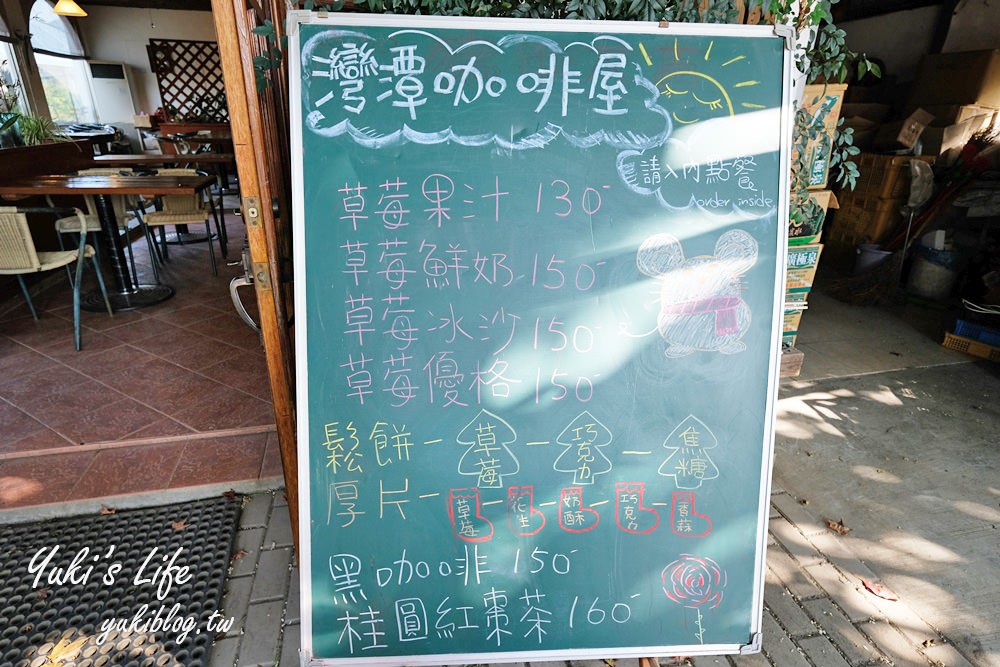 灣潭咖啡屋
請入內點餐
order inside
草莓果汁 130
草莓鮮奶 150
草莓冰沙 150
草莓優格 150
鬆餅－草莓－巧克力－焦糖
厚片－草莓－花生－奶酥－巧克力－香蒜
黑咖啡 150
桂圓紅棗茶 160
Yuki's Life
yukiblog.tw